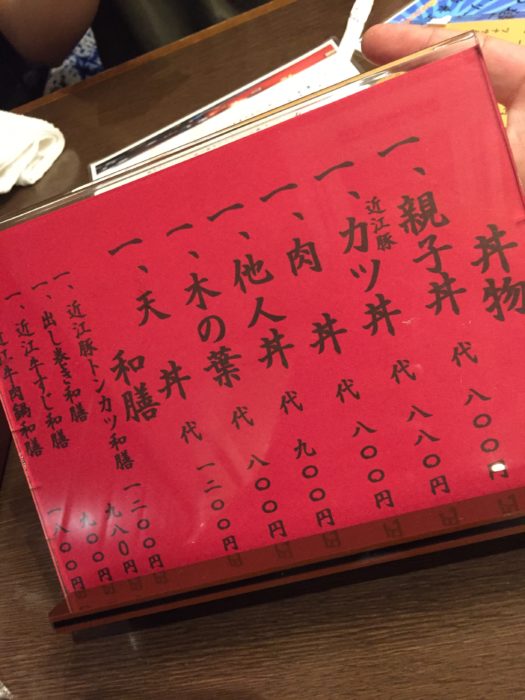 丼物
一、親子丼 代 八〇〇円
一、近江豚カツ丼 代 八八〇円
一、肉丼 代 八〇〇円
一、他人丼 代 九〇〇円
一、木の葉 代 八〇〇円
一、天丼 代 一二〇〇円
和膳
一、近江豚トンカツ和膳 一二〇〇円
一、出し巻き和膳 九八〇円
一、近江牛すじ和膳 九〇〇円
一、近江牛肉鍋和膳 一八〇〇円